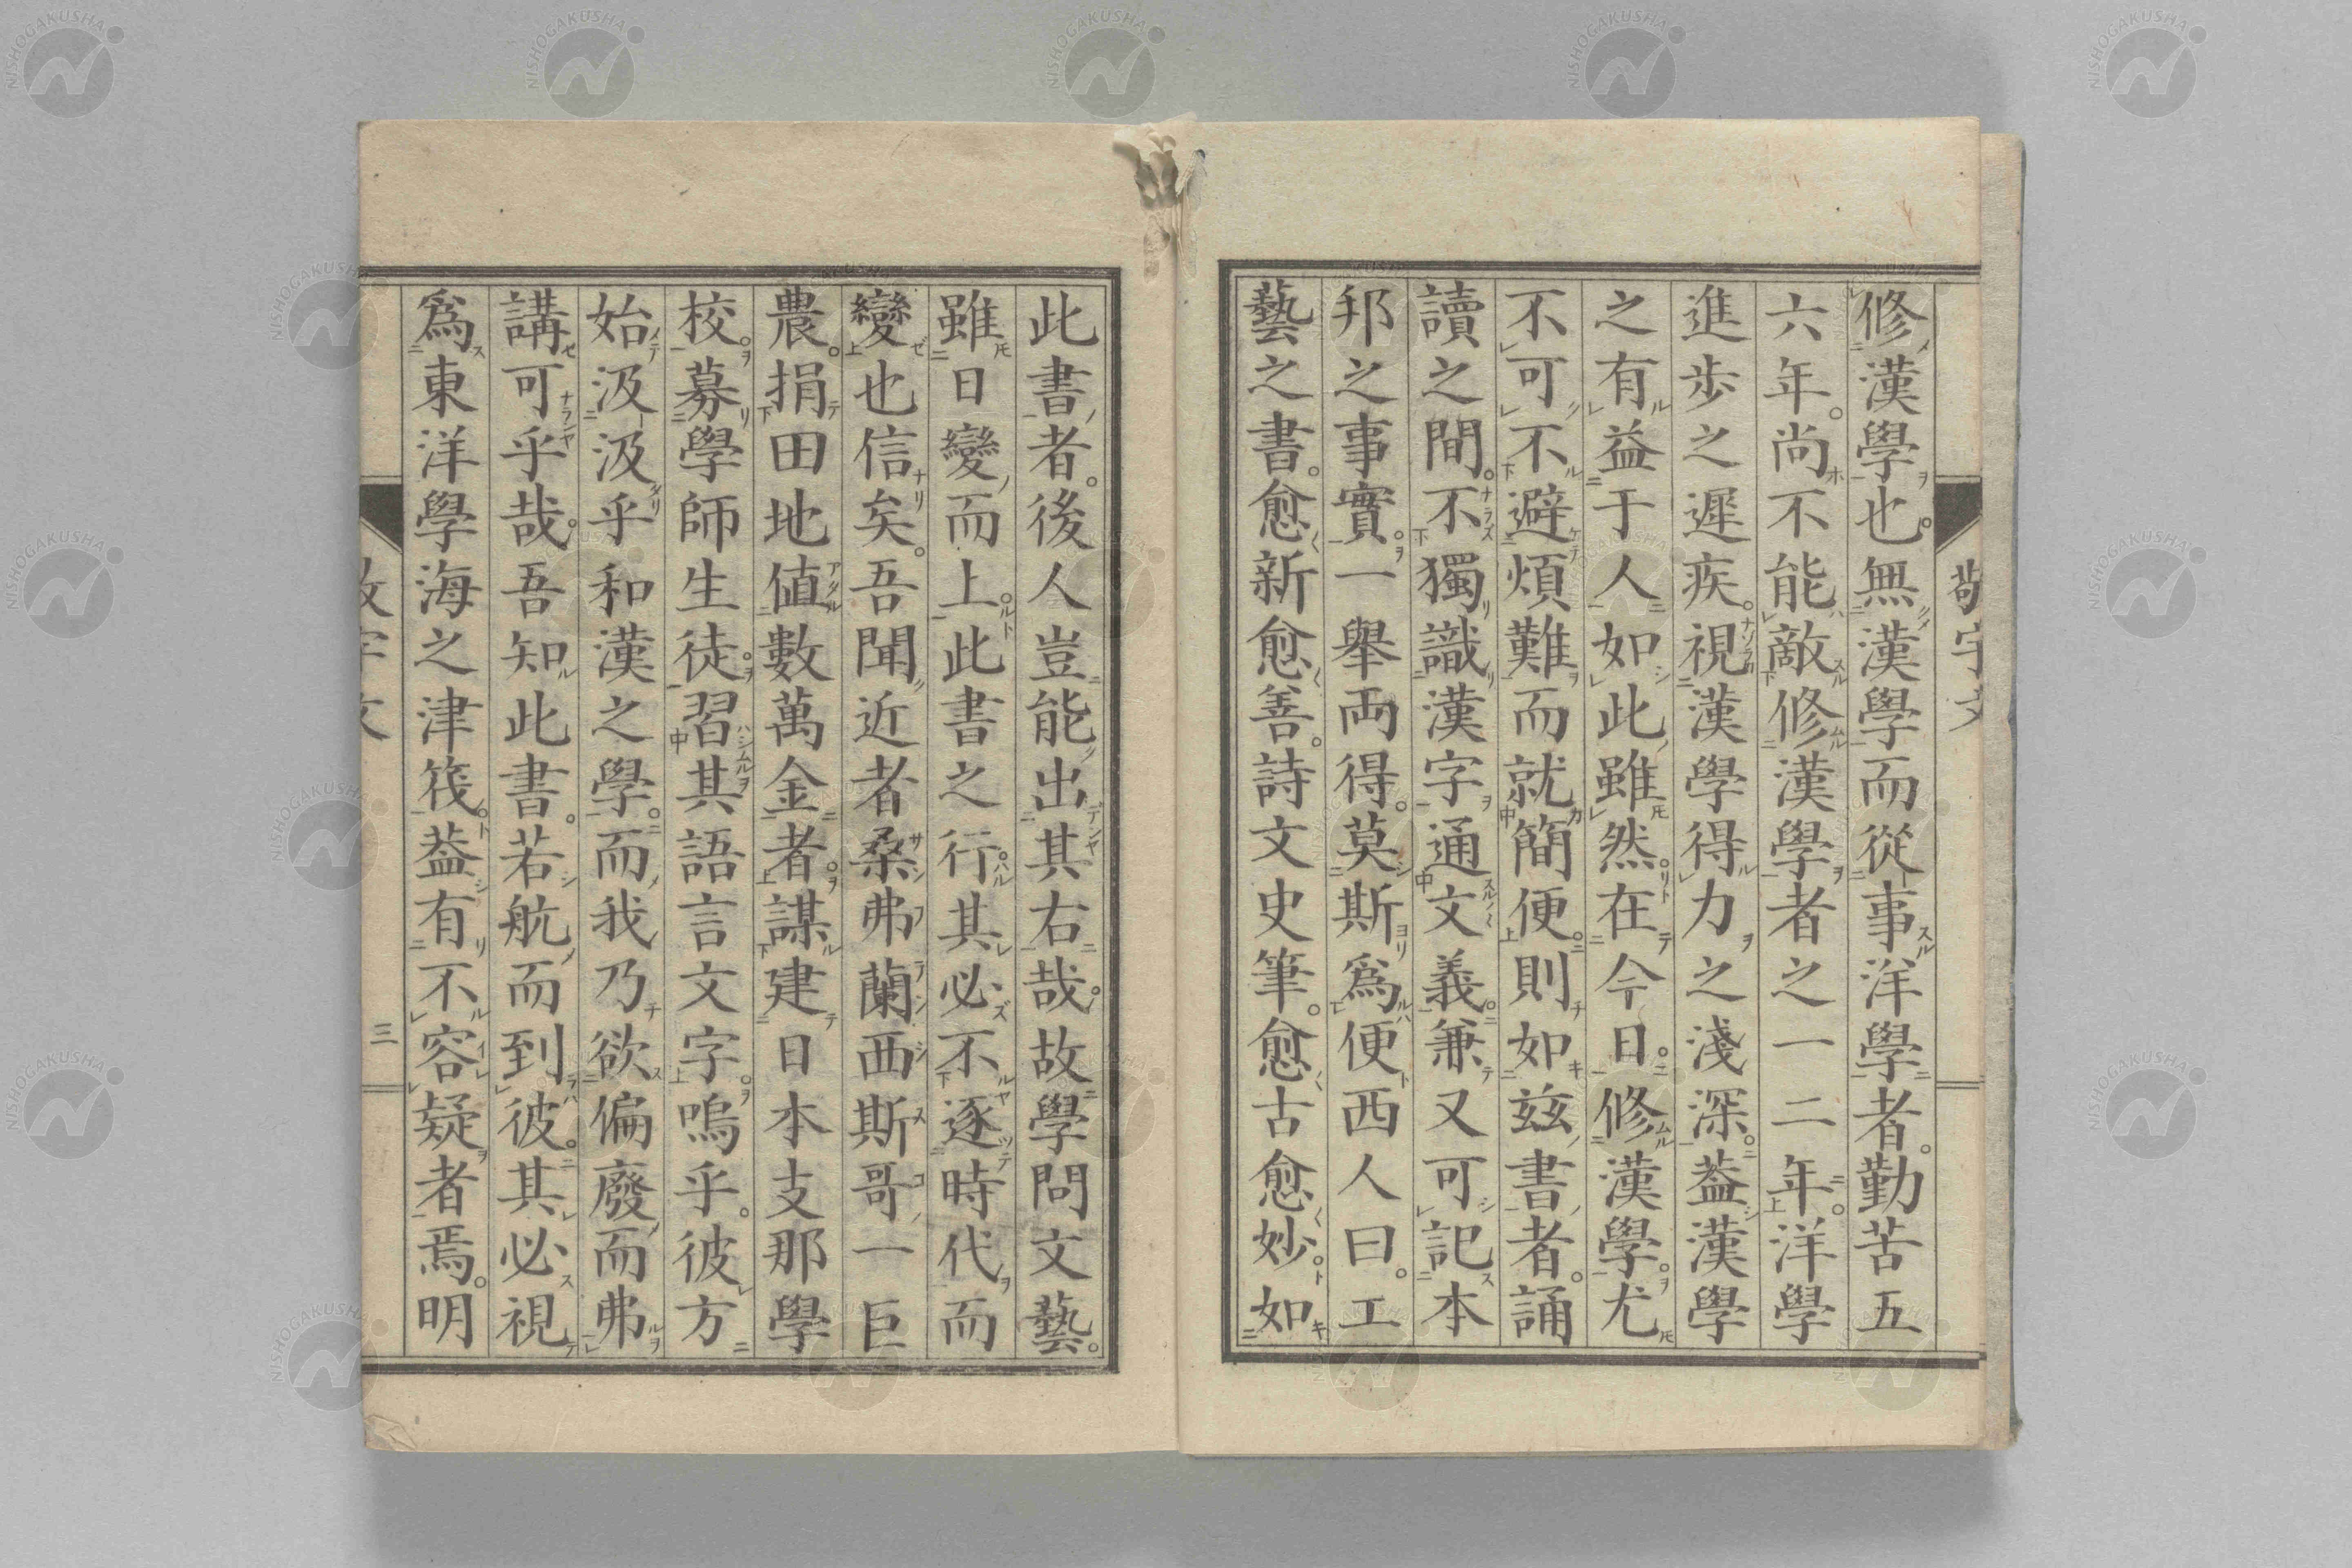 修漢學也。無漢學而從事洋學者。勤苦五
六年。尚不能敵修漢學者之一二年。洋學
進步之遲疾。視漢學得力之淺深。葢漢學
之有益于人如此雖然。在今日。修漢學。尤
不可不避煩難而就簡便。則如玆書者。誦
讀之間。不獨識漢字通文義。兼又可記本
邦之事實。一舉兩得。莫斯爲便西人曰。工
藝之書。愈新愈善。詩文史筆。愈古愈妙。如
此書者。後人豈能出其右哉。故學問文藝。
雖日變而上。此書之行。其必不逐時代而
變也信矣。吾聞近者桑弗蘭西斯哥一巨
農。捐田地値數萬金者。謀建日本支那學
校。募學師生徒。習其語言文字。嗚乎。彼方
始汲汲乎和漢之學。而我乃欲偏廢而弗
講可乎哉。吾知此書。若航而到彼。其必視
爲東洋學海之津筏。葢有不容疑者焉。明
三
NISHOGAKUSHA